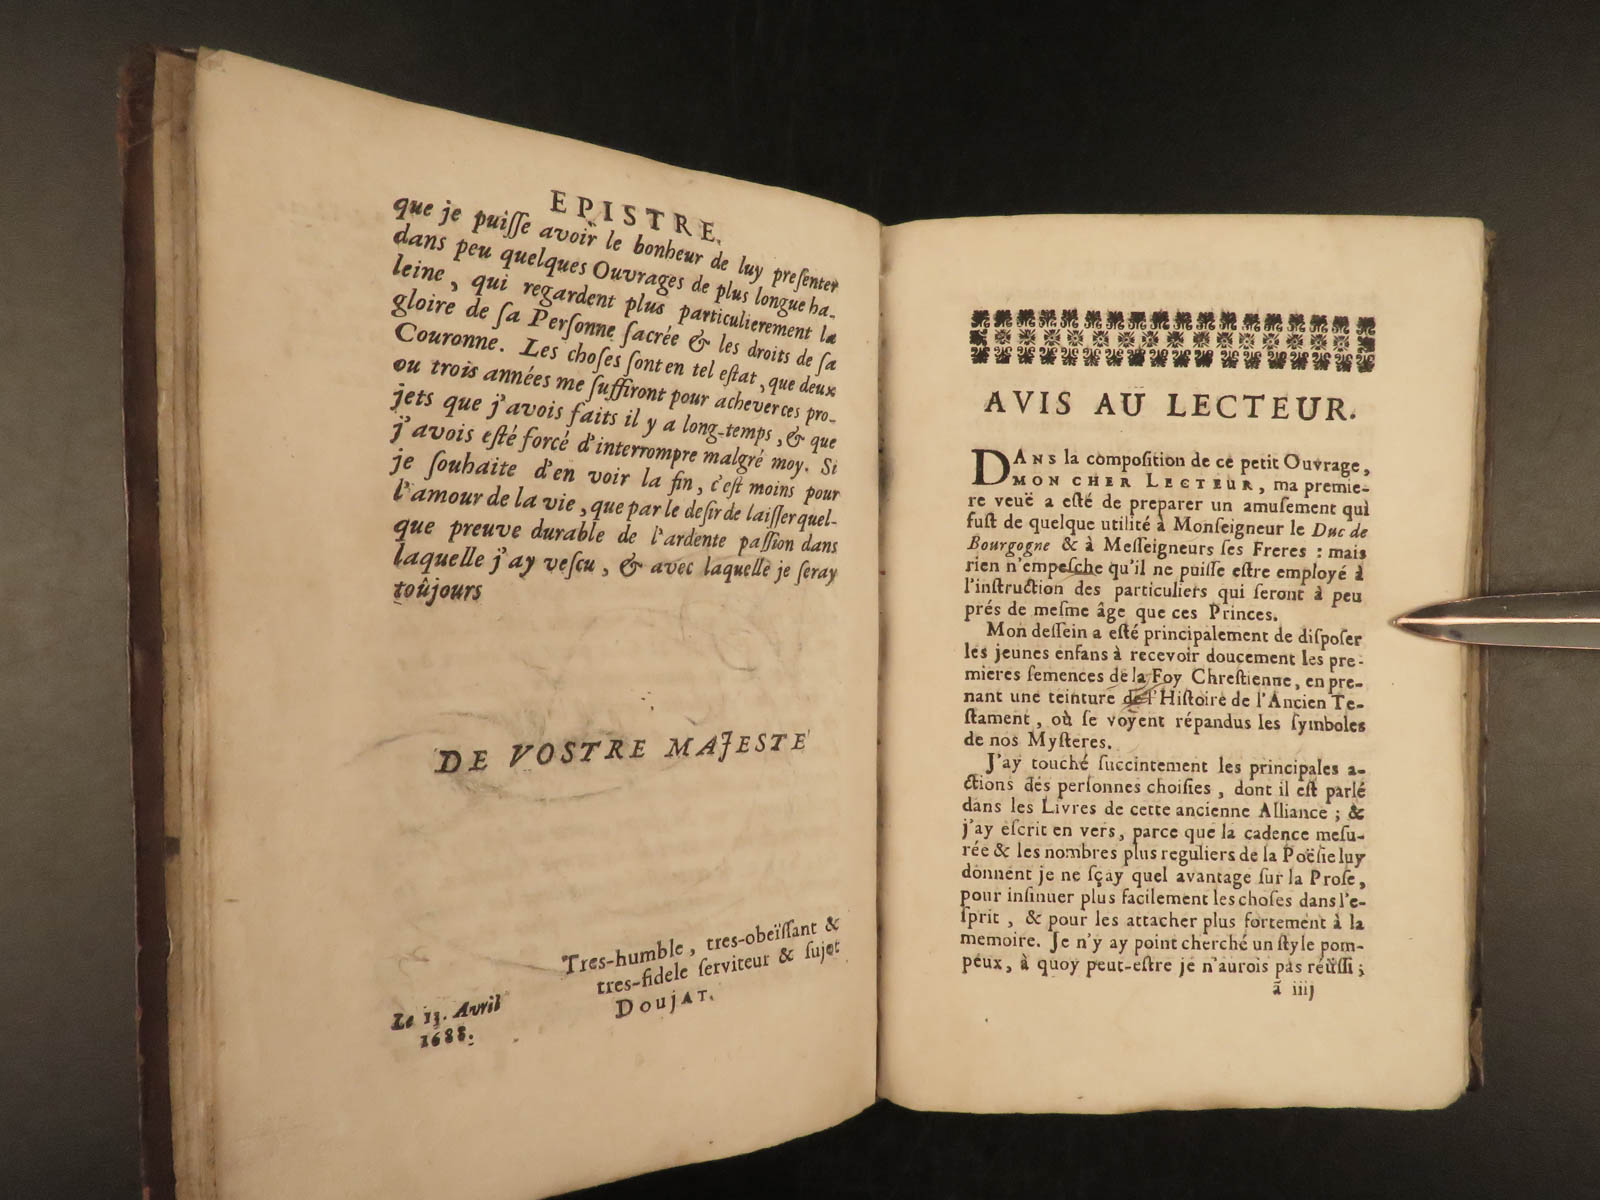 EPISTRE.
que je puiſſe avoir le bonheur de luy preſenter
dans peu quelques Ouvrages de plus longue ha-
leine, qui regardent plus particulierement la
gloire de ſa Perſonne ſacrée & les droits de ſa
Couronne. Les choſes ſont en tel eſtat, que deux
ou trois années me ſuffiront pour achever ces pro-
jets que j'avois faits il y a long-temps, & que
j'avois eſté forcé d'interrompre malgré moy. Si
je ſouhaite d'en voir la fin, c'eſt moins pour
l'amour de la vie, que par le deſir de laiſſer quel-
que preuve durable de l'ardente paſſion dans
laquelle j'ay veſcu, & avec laquelle je ſeray
toûjours
DE VOSTRE MAJESTE'
Tres-humble, tres-obeïſſant &
tres-fidele ſerviteur & ſujet
DOUJAT.
Le 13. Avril
1688.
AVIS AU LECTEUR.
DANS la compoſition de ce petit Ouvrage,
MON CHER LECTEUR, ma premie-
re veuë a eſté de preparer un amuſement qui
fuſt de quelque utilité à Monſeigneur le Duc de
Bourgogne & à Meſſeigneurs ſes Freres : mais
rien n'empeſche qu'il ne puiſſe eſtre employé à
l'inſtruction des particuliers qui ſeront à peu
prés de meſme âge que ces Princes.
Mon deſſein a eſté principalement de diſpoſer
les jeunes enfans à recevoir doucement les pre-
mieres ſemences de la Foy Chreſtienne, en pre-
nant une teinture de l'Hiſtoire de l'Ancien Te-
ſtament, où ſe voyent répandus les ſymboles
de nos Myſteres.
J'ay touché ſuccintement les principales a-
ctions des perſonnes choiſies, dont il eſt parlé
dans les Livres de cette ancienne Alliance ; &
j'ay eſcrit en vers, parce que la cadence meſu-
rée & les nombres plus reguliers de la Poëſie luy
donnent je ne ſçay quel avantage ſur la Proſe,
pour inſinuer plus facilement les choſes dans l'e-
ſprit, & pour les attacher plus fortement à la
memoire. Je n'y ay point cherché un ſtyle pom-
peux, à quoy peut-eſtre je n'aurois pas réüſſi ;
ã iiij